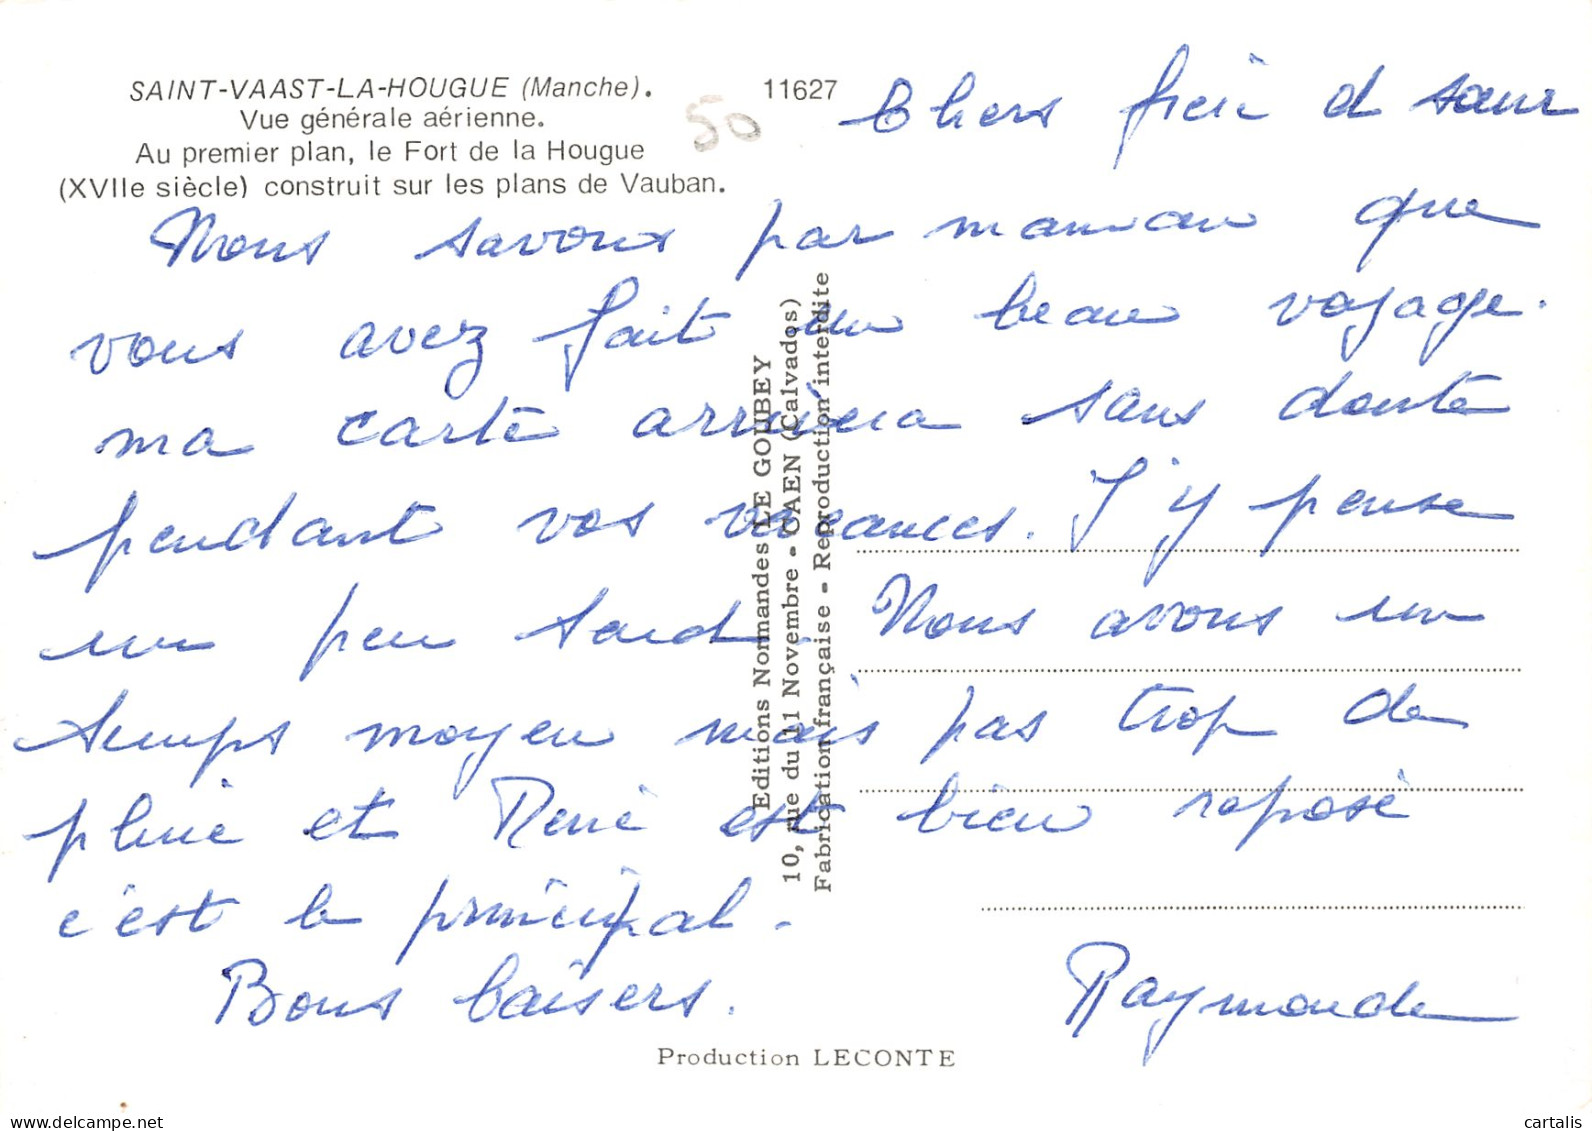 SAINT-VAAST-LA-HOUGUE (Manche).
Vue générale aérienne.
Au premier plan, le Fort de la Hougue
(XVIIe siècle) construit sur les plans de Vauban.
11627
50
Chers frère et sœur
Nous savons par maman que
vous avez fait un beau voyage.
ma carte arrivera sans doute
pendant vos vacances. J'y pense
un peu tard. Nous avons un
temps moyen mais pas trop de
pluie et René est bien reposé
c'est le principal.
Bons baisers.
Raymonde
Editions Normandes LE GOUBEY
10, rue du 11 Novembre - CAEN (Calvados)
Fabrication française - Reproduction interdite
Production LECONTE
delcampe.net
cartalis